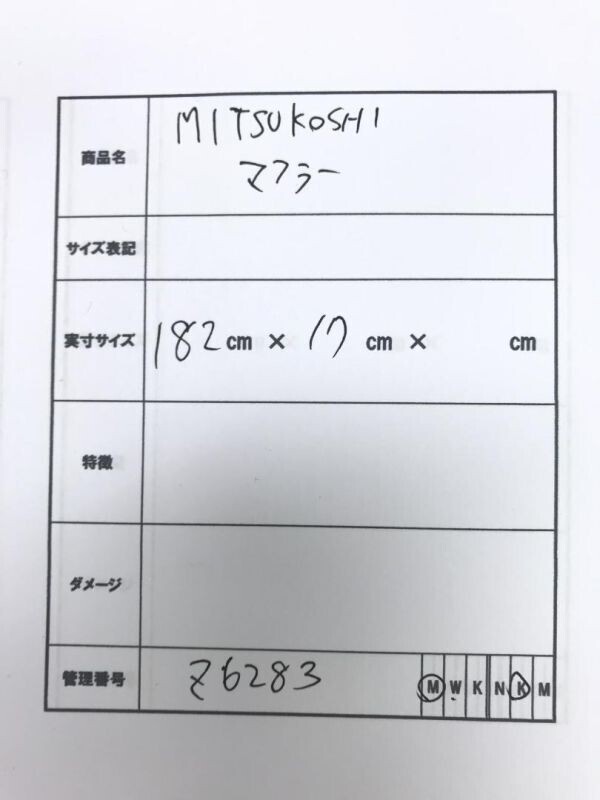 商品名
MITSUKOSHI
マフラー
サイズ表記
実寸サイズ 182 cm × 17 cm × cm
特徴
ダメージ
管理番号 Z6283 M W K N K M